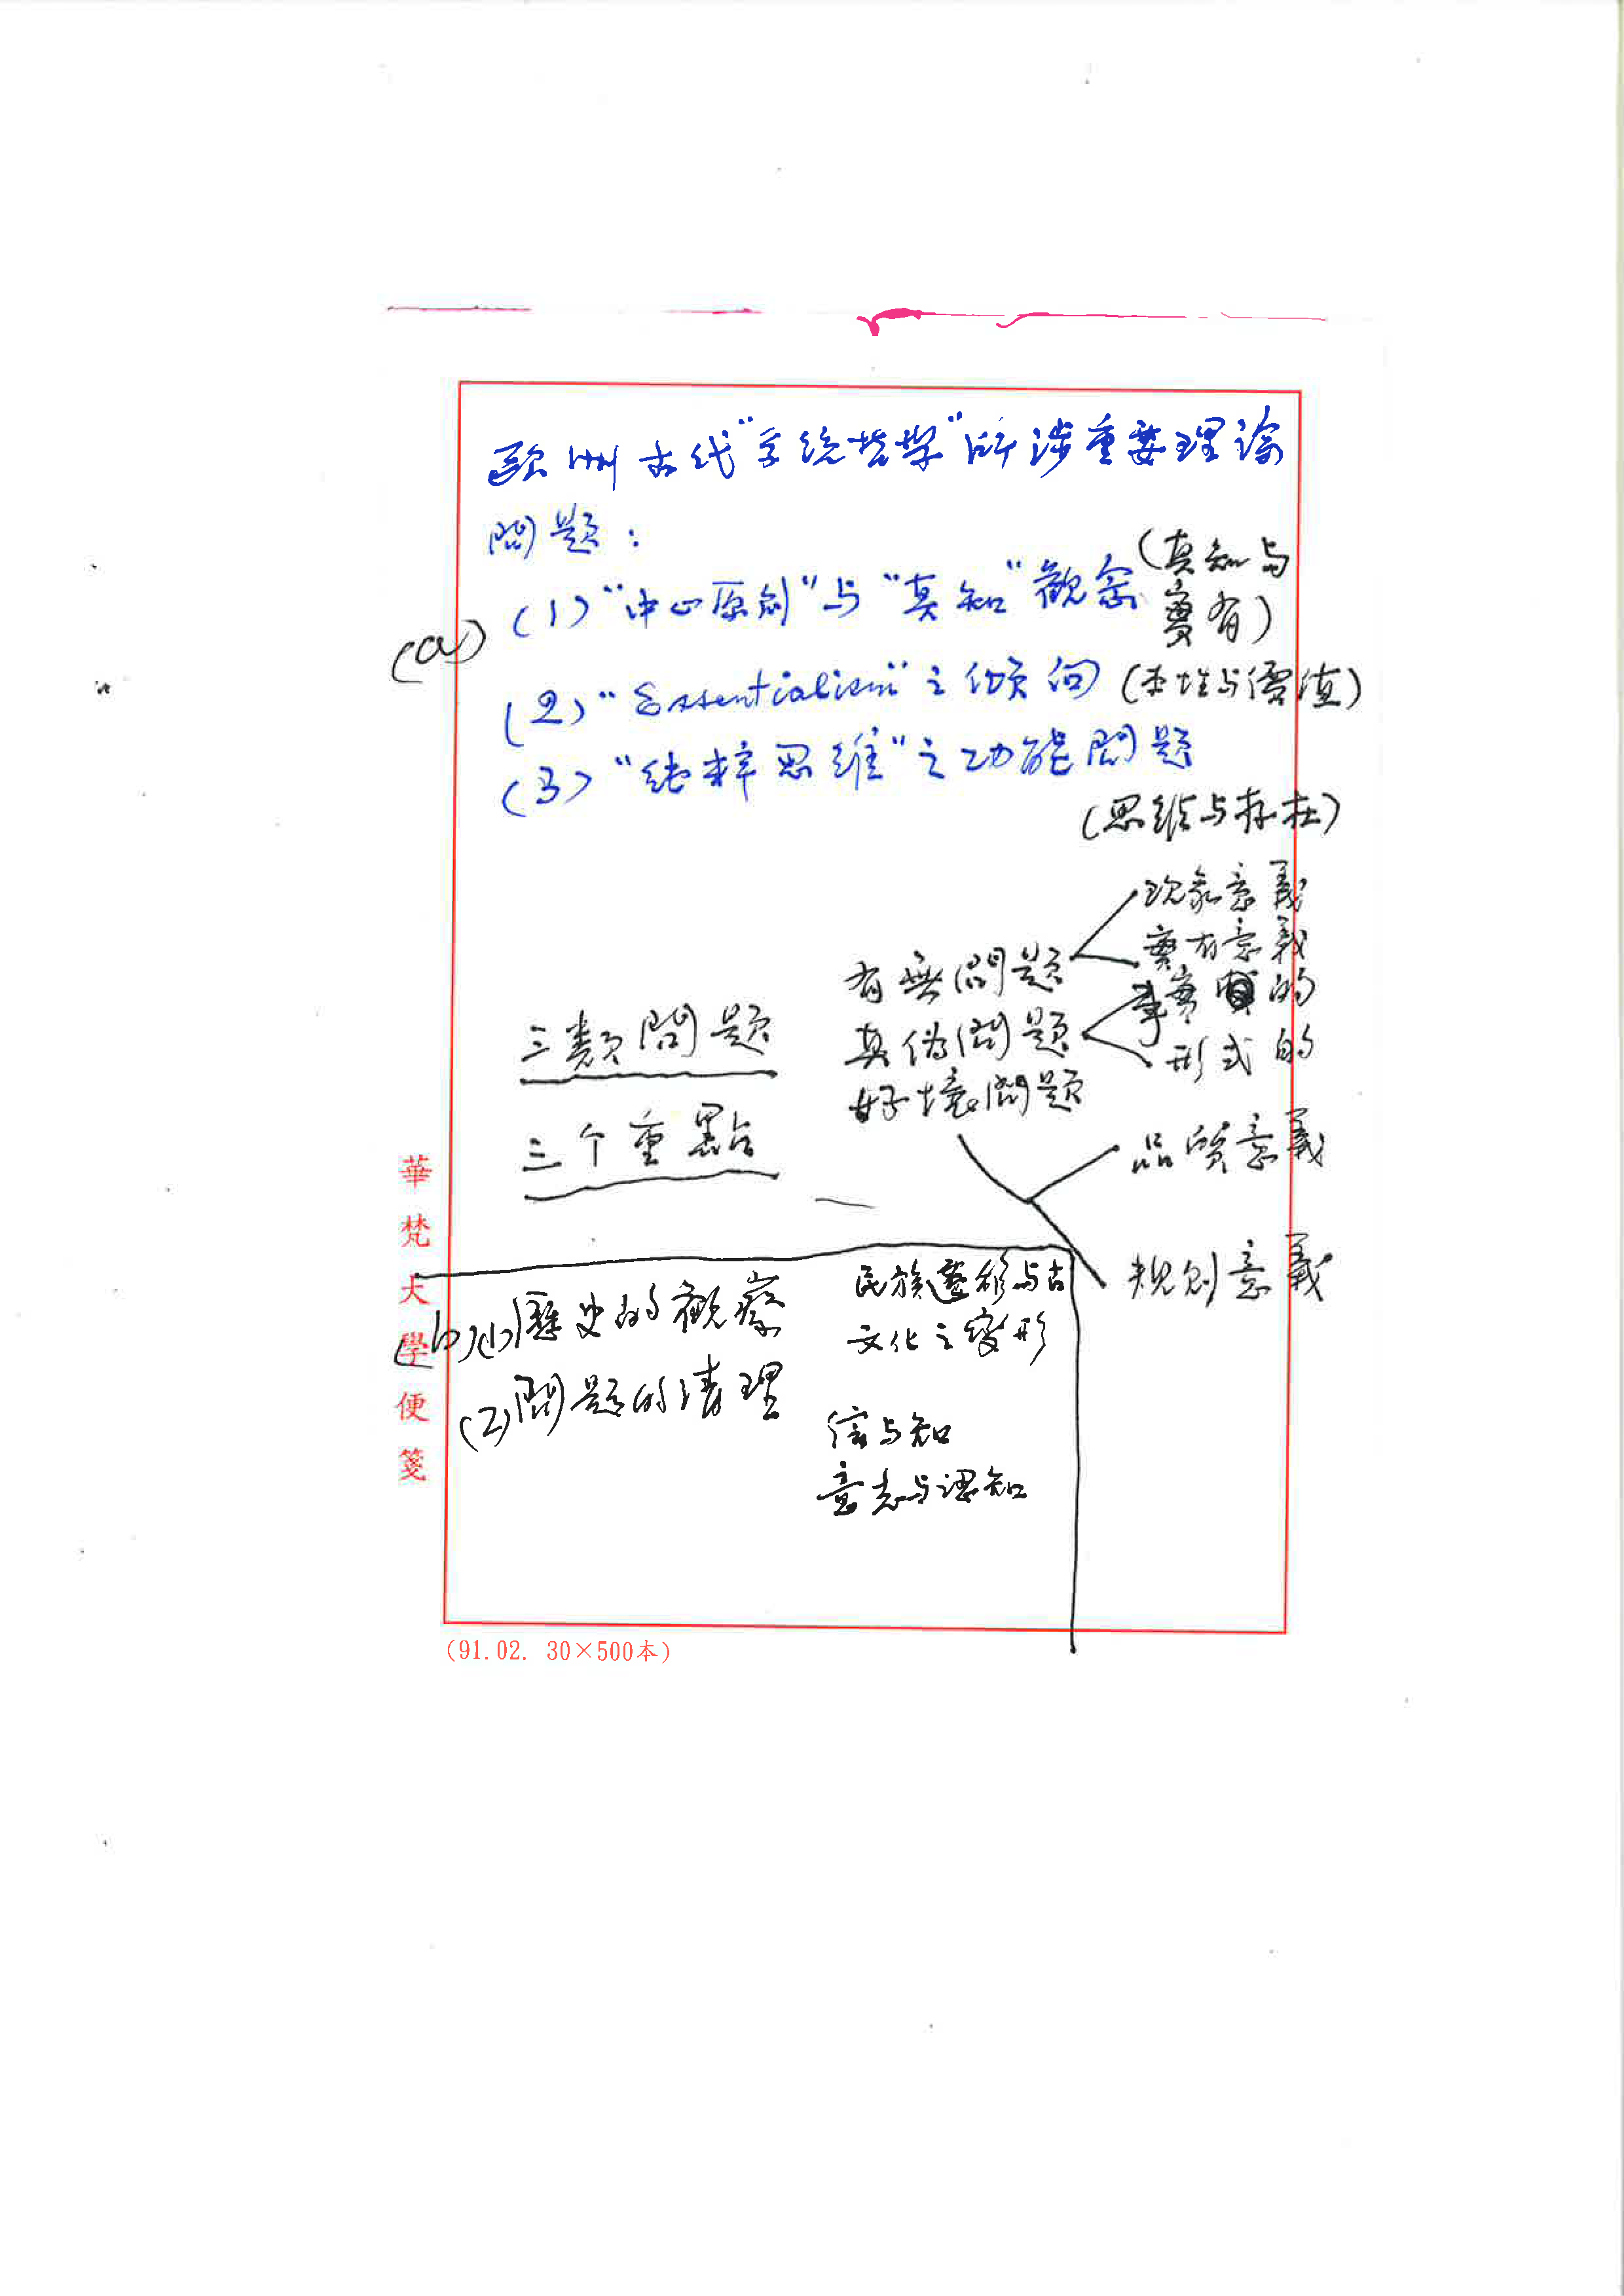 歐洲古代"系統哲學"所涉重要理論
問題：
(a)
(1)"中心原則"与"真知"觀念(真知与
實有)
(2)"Essentialism"之傾向(本性与價值)
(3)"純粹思維"之功能問題
(思維与存在)
三類問題
三个重點
有無問題
現象意義
實有意義
真偽問題
事實的
形式的
好壞問題
品質意義
規則意義
(b)(1)歷史的觀察
民族遷移与古
文化之變形
(2)問題的清理
信与知
意志与認知
華梵大學便箋
(91.02. 30×500本)